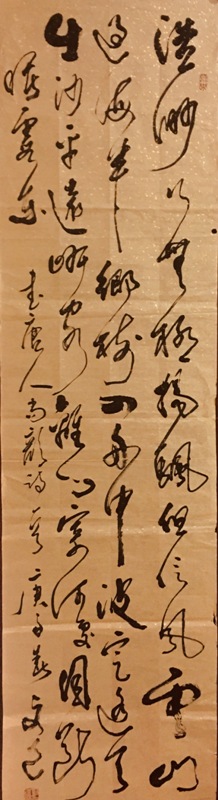 浩渺行無極揚颿但信風雲山
過海半鄉樹入舟中波定遙天
出沙平遠岸窮離心寄何處目斷
曙霞東 書唐人尚顏詩一首 庚子